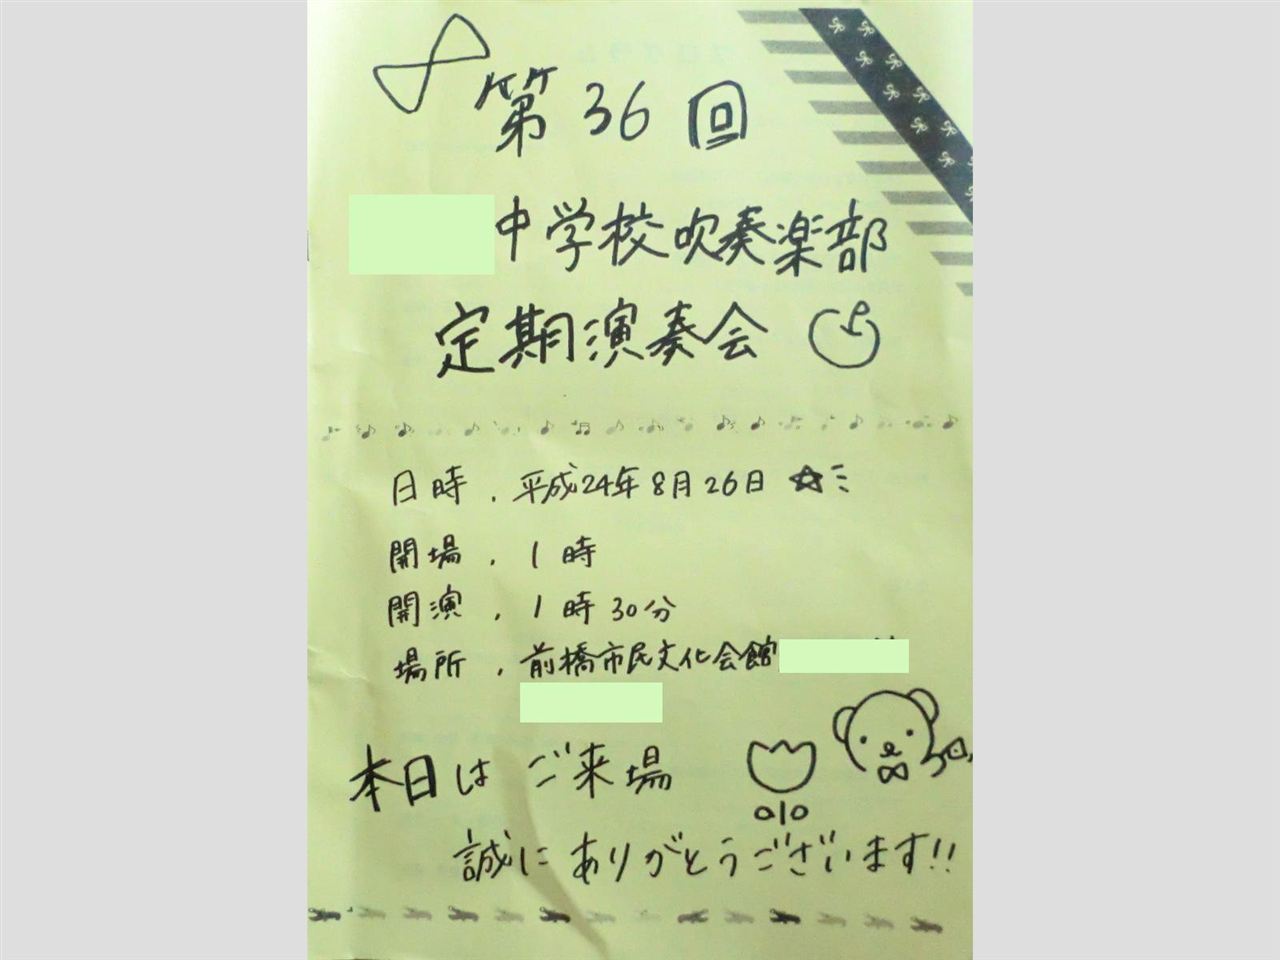 第36回
中学校吹奏楽部
定期演奏会
日時.平成24年8月26日
開場.1時
開演.1時30分
場所.前橋市民文化会館
本日はご来場
誠にありがとうございます!!